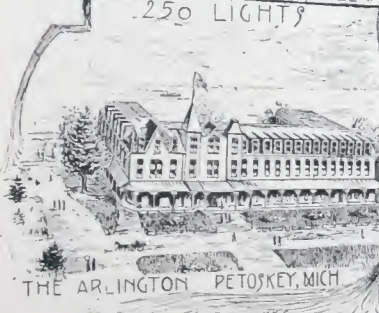 250 LIGHTS
THE ARLINGTON PETOSKEY, MICH.